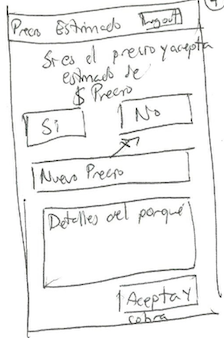 Precio Estimado Logout
Si es el precio y acepta
estimado de
$ Precio
Si No
Nuevo Precio
Detalles del porqué
Acepta y
cobra